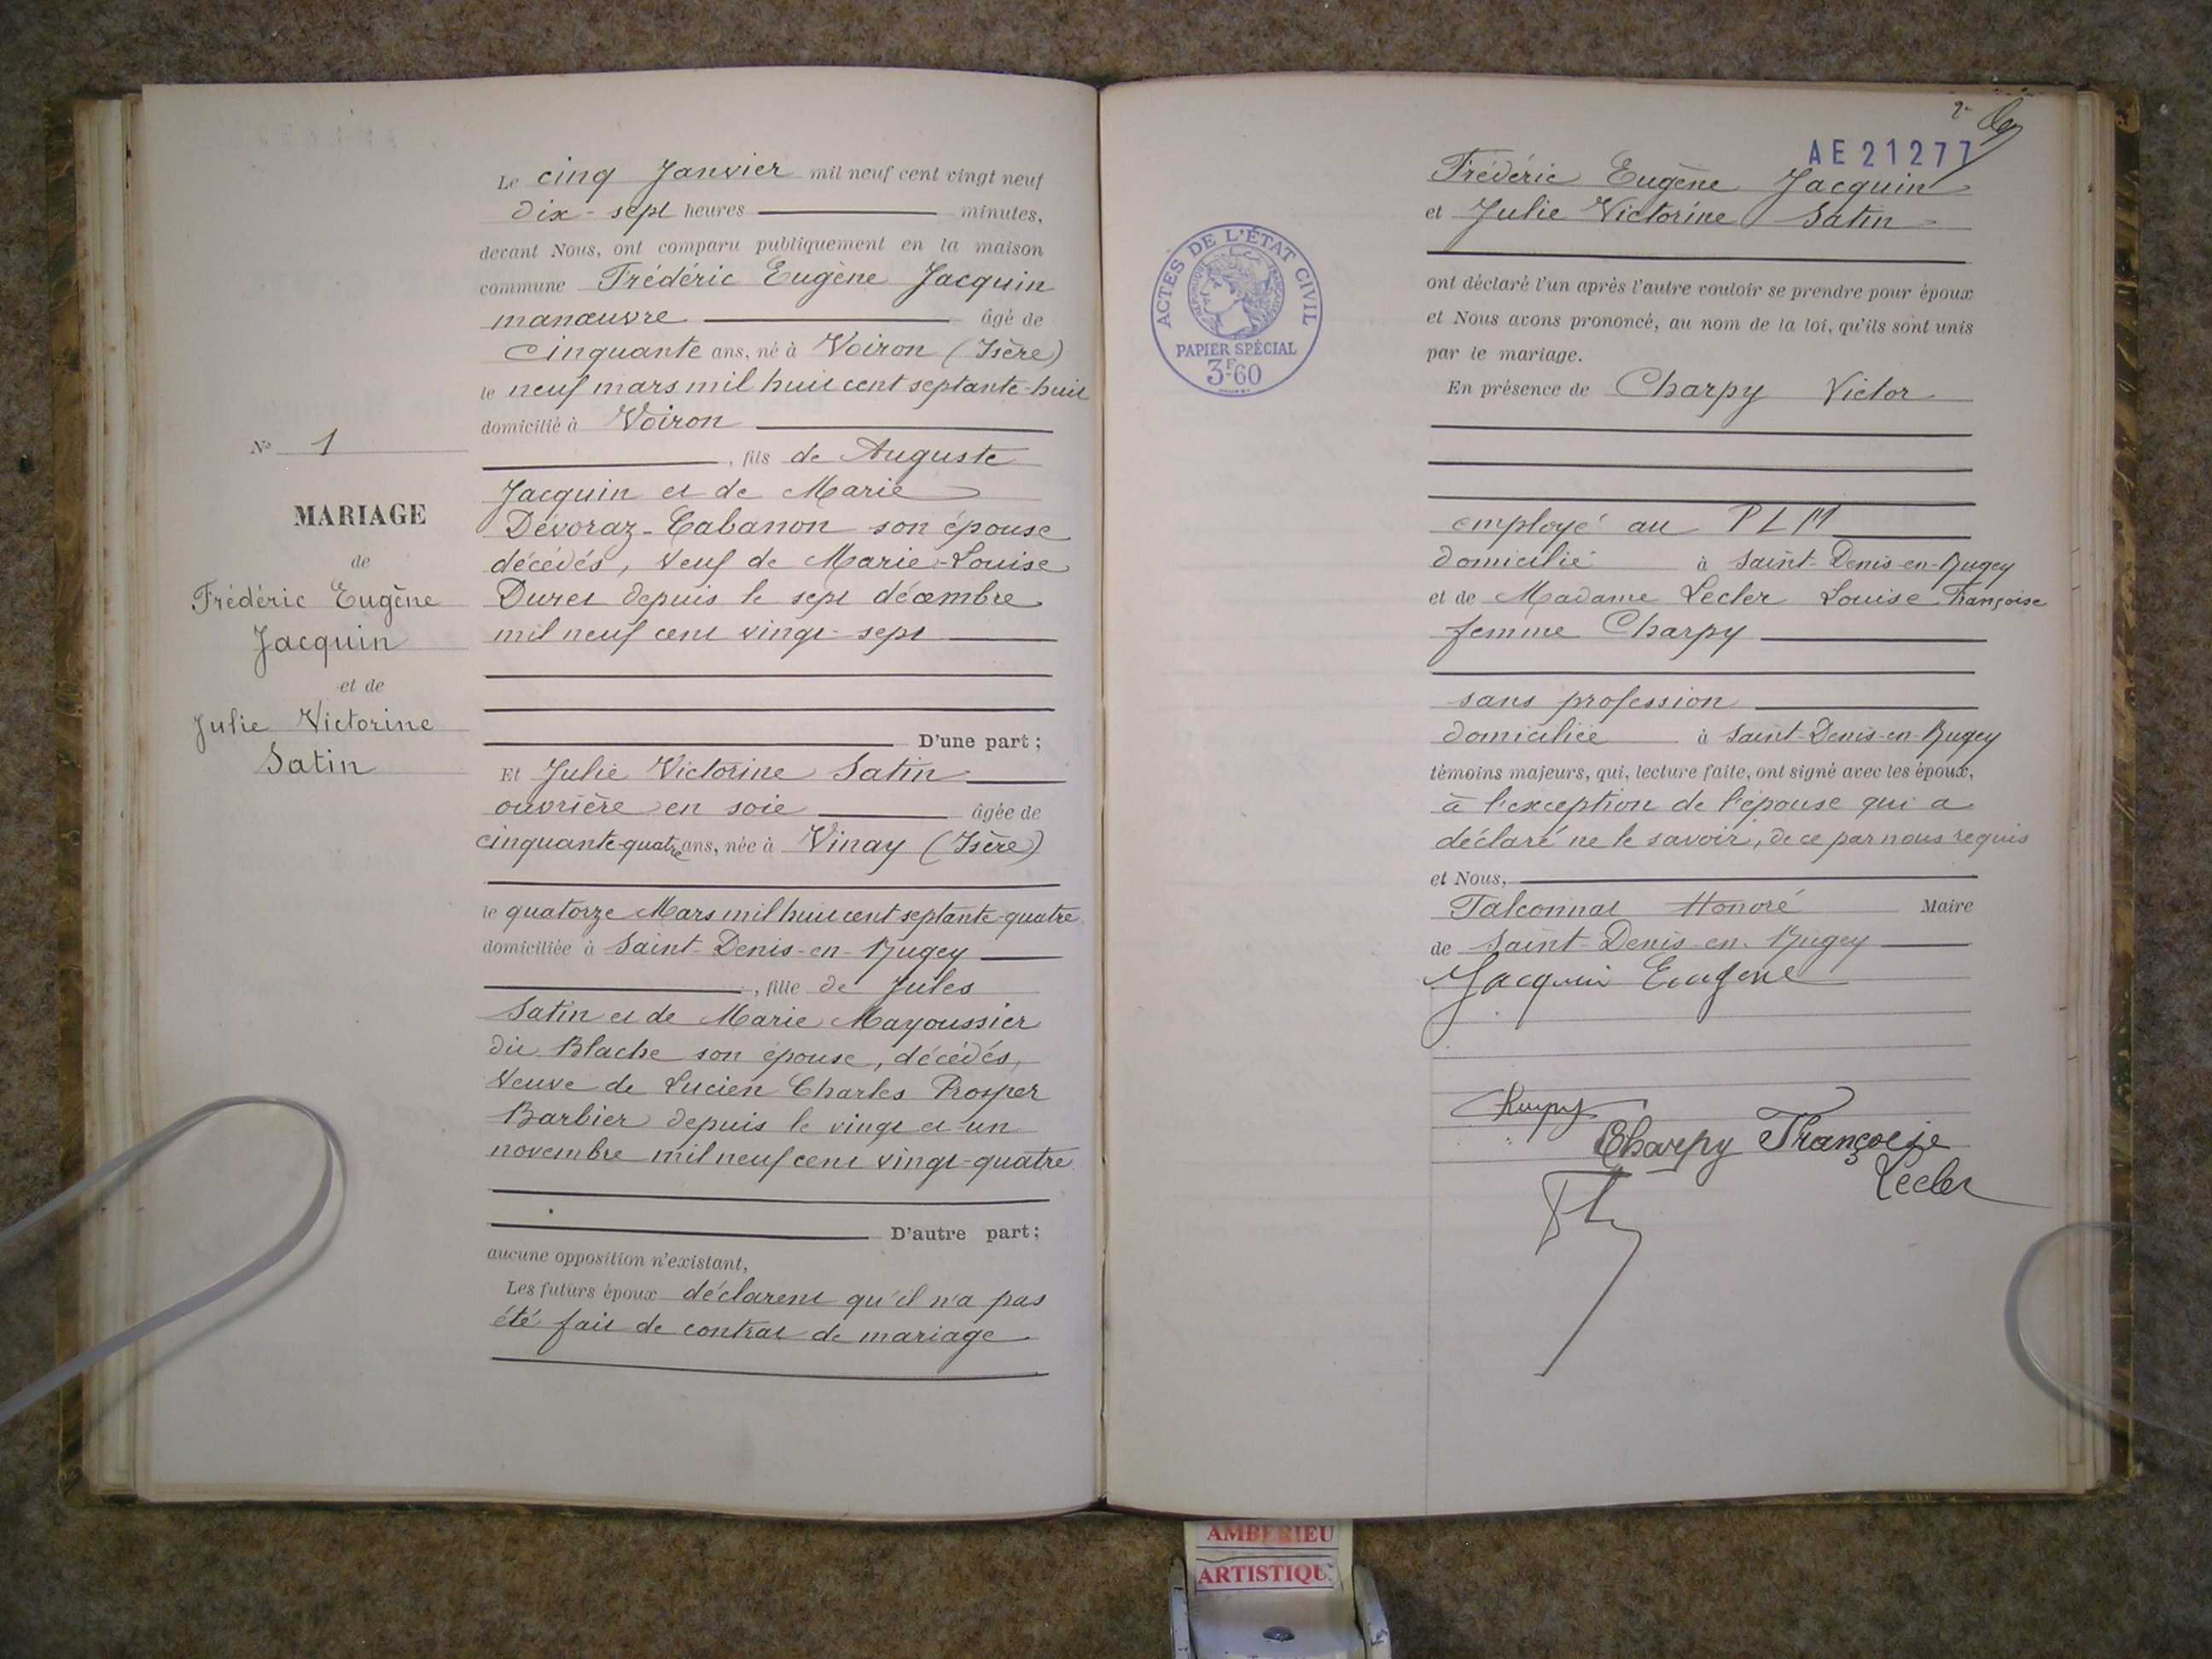 Le cinq Janvier mil neuf cent vingt neuf
dix-sept heures minutes,
devant Nous, ont comparu publiquement en la maison
commune Frédéric Eugène Jacquin
manœuvre âgé de
cinquante ans, né à Voiron (Isère)
le neuf mars mil huit cent septante-huit
domicilié à Voiron
, fils de Auguste
Jacquin et de Marie
Dévoraz-Cabanon son épouse
décédés, Veuf de Marie-Louise
Duret depuis le sept décembre
mil neuf cent vingt-sept
D'une part ;
Et Julie Victorine Satin
ouvrière en soie âgée de
cinquante-quatre ans, née à Vinay (Isère)
le quatorze Mars mil huit cent septante-quatre
domiciliée à Saint-Denis-en-Bugey
, fille de Jules
Satin et de Marie Mayoussier
dit Blache son épouse, décédés,
Veuve de Lucien Charles Prosper
Barbier depuis le vingt et un
novembre mil neuf cent vingt-quatre
D'autre part ;
aucune opposition n'existant,
Les futurs époux déclarent qu'il n'a pas
été fait de contrat de mariage
No 1
MARIAGE
de
Frédéric Eugène
Jacquin
et de
Julie Victorine
Satin
AE 21277
Frédéric Eugène Jacquin
et Julie Victorine Satin
ont déclaré l'un après l'autre vouloir se prendre pour époux
et Nous avons prononcé, au nom de la loi, qu'ils sont unis
par le mariage.
En présence de Charpy Victor
employé au PLM
domicilié à Saint-Denis-en-Bugey
et de Madame Lecler Louise Françoise
femme Charpy
sans profession
domiciliée à Saint-Denis-en-Bugey
témoins majeurs, qui, lecture faite, ont signé avec les époux,
à l'exception de l'épouse qui a
déclaré ne le savoir, de ce par nous requis
et Nous,
Falconnat Honoré Maire
de Saint-Denis-en-Bugey
Jacquin Eugene
Charpy
Charpy Françoise
Lecler
ACTES DE L'ÉTAT CIVIL
RÉPUBLIQUE FRANÇAISE
PAPIER SPÉCIAL
3F60
AMBERIEU
ARTISTIQUE